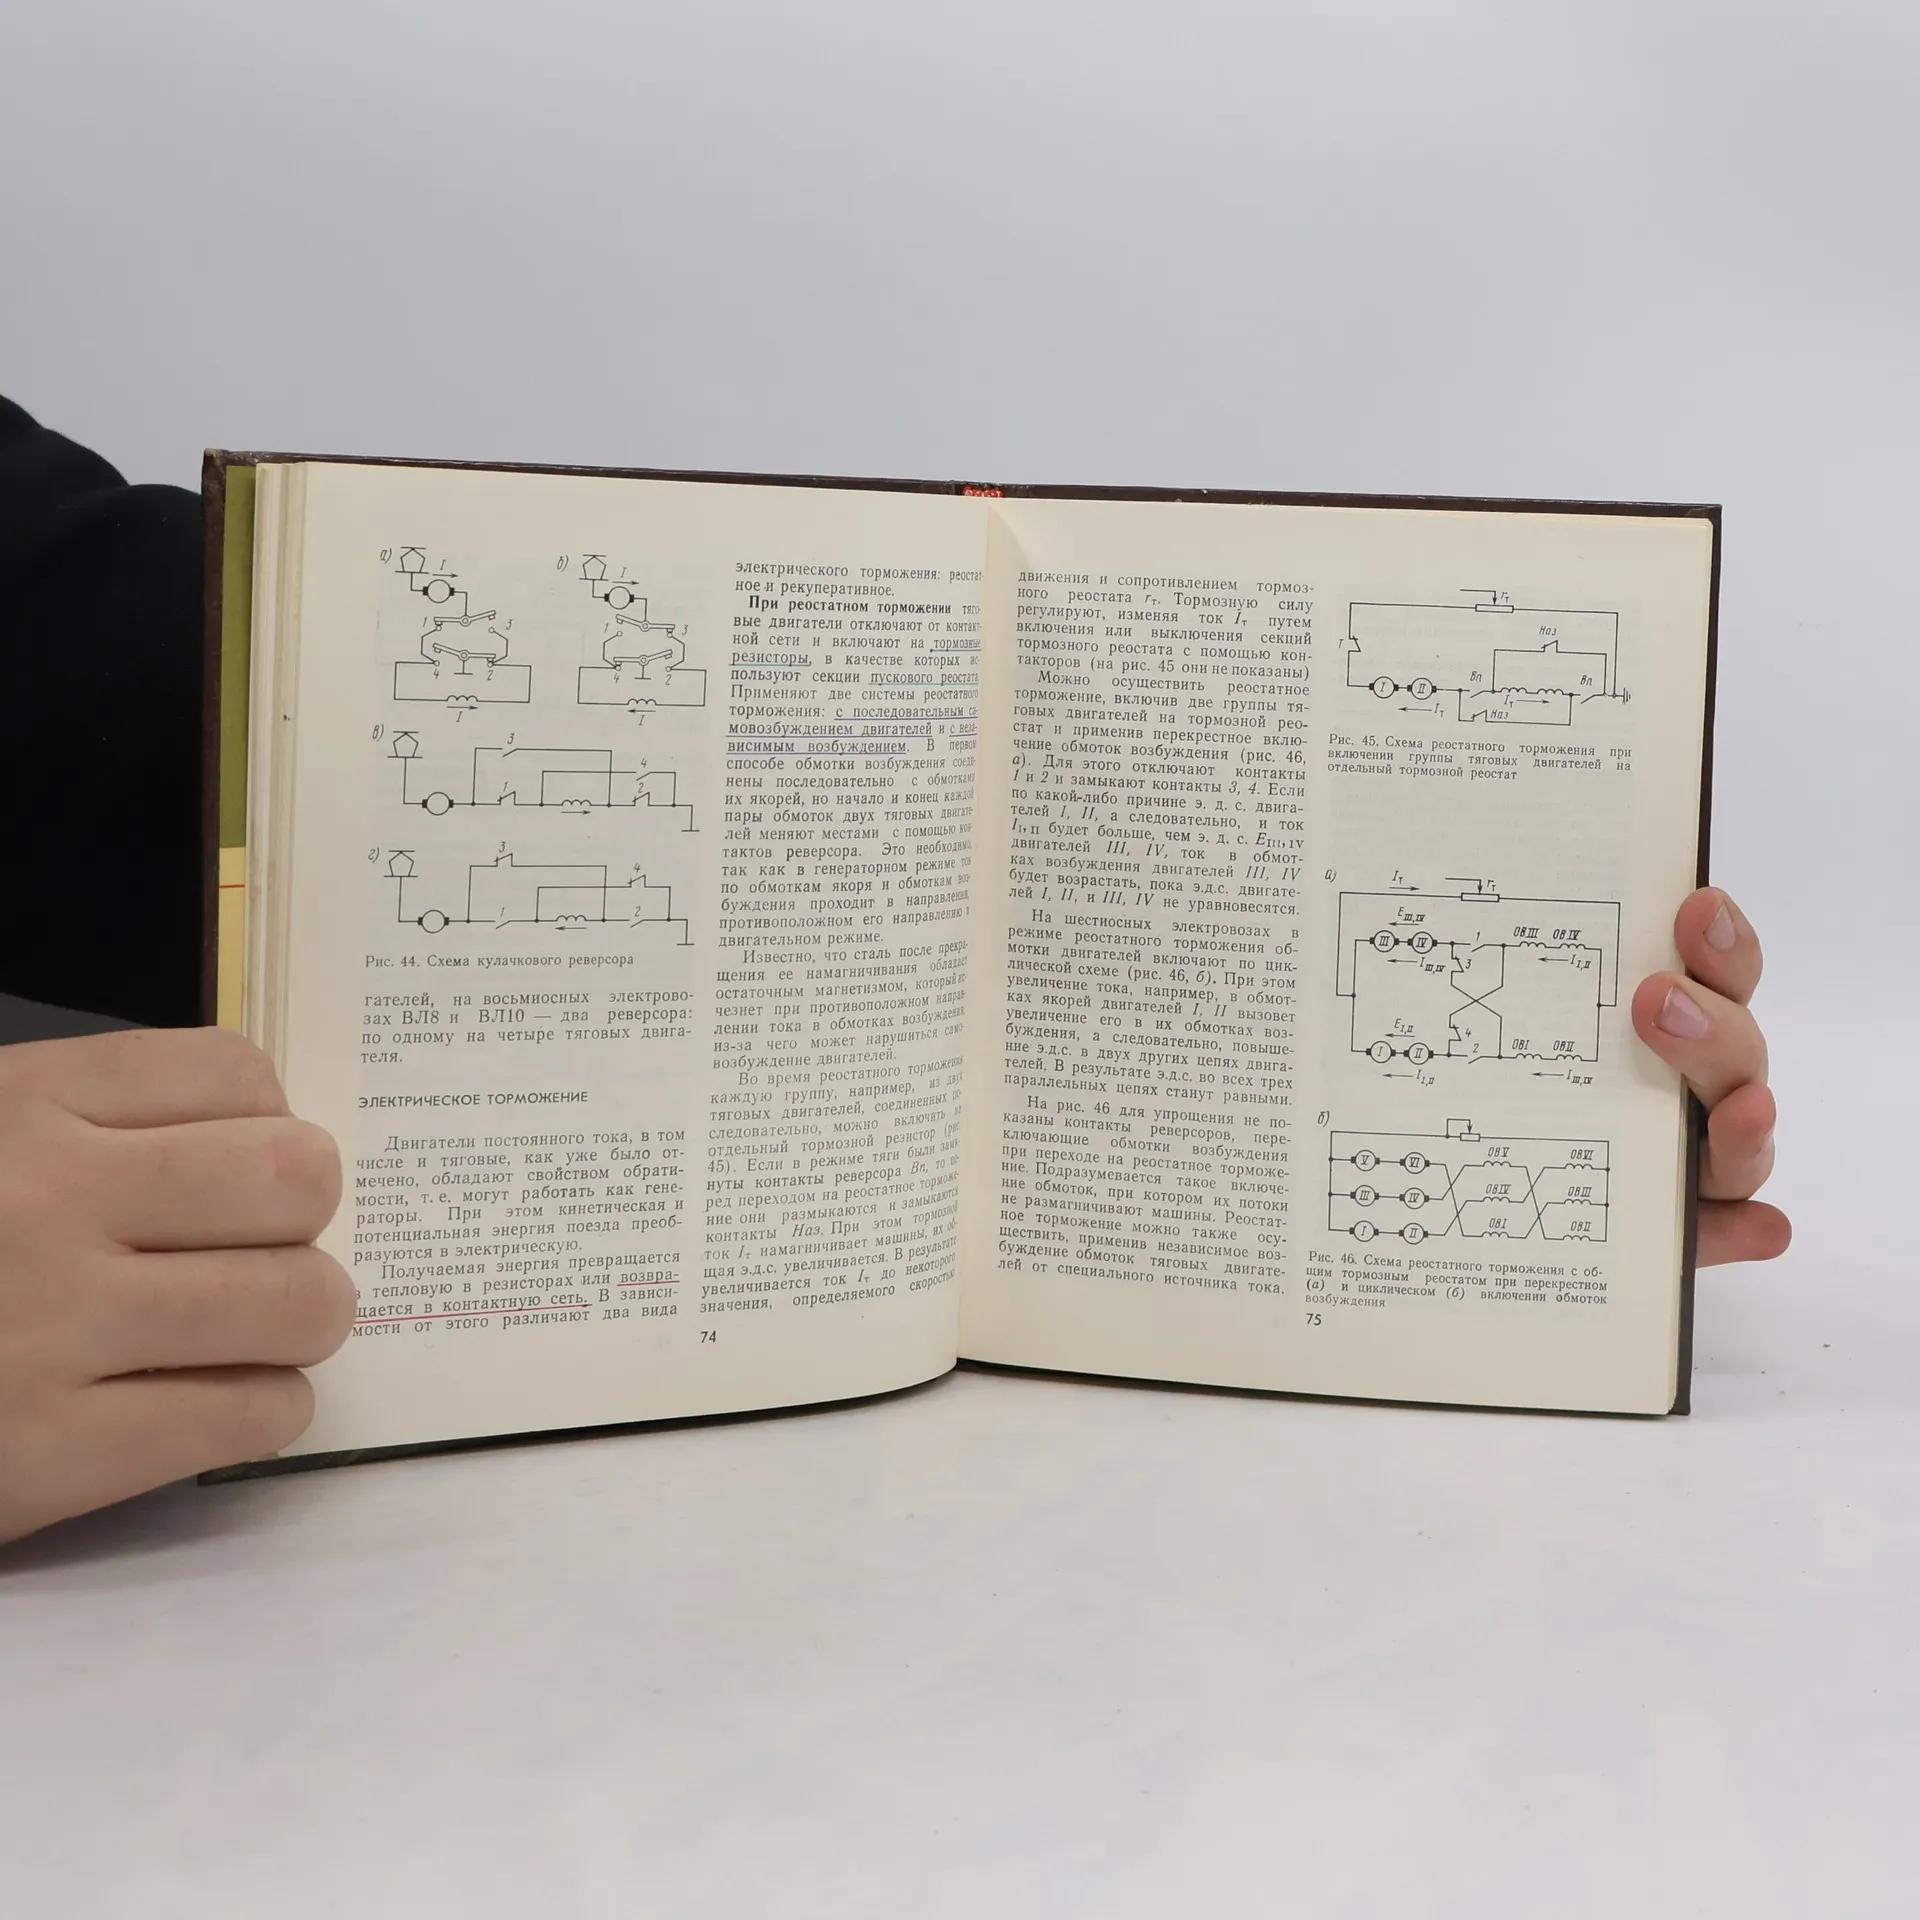 а)
I
1
3
4
2
I
б)
I
1
3
4
2
I
в)
3
4
1
2
г)
3
4
1
2
Рис. 44. Схема кулачкового реверсора
гателей, на восьмиосных электрово-
зах ВЛ8 и ВЛ10 — два реверсора:
по одному на четыре тяговых двига-
теля.
ЭЛЕКТРИЧЕСКОЕ ТОРМОЖЕНИЕ
Двигатели постоянного тока, в том
числе и тяговые, как уже было от-
мечено, обладают свойством обрати-
мости, т. е. могут работать как гене-
раторы. При этом кинетическая и
потенциальная энергия поезда преоб-
разуются в электрическую.
Получаемая энергия превращается
в тепловую в резисторах или возвра-
щается в контактную сеть. В зависи-
мости от этого различают два вида
электрического торможения: реостат-
ное и рекуперативное.
При реостатном торможении тяго-
вые двигатели отключают от контакт-
ной сети и включают на тормозные
резисторы, в качестве которых ис-
пользуют секции пускового реостата.
Применяют две системы реостатного
торможения: с последовательным са-
мовозбуждением двигателей и с неза-
висимым возбуждением. В первом
способе обмотки возбуждения соеди-
нены последовательно с обмотками
их якорей, но начало и конец каждой
пары обмоток двух тяговых двигате-
лей меняют местами с помощью кон-
тактов реверсора. Это необходимо,
так как в генераторном режиме ток
по обмоткам якоря и обмоткам воз-
буждения проходит в направлении,
противоположном его направлению в
двигательном режиме.
Известно, что сталь после прекра-
щения ее намагничивания обладает
остаточным магнетизмом, который ис-
чезнет при противоположном направ-
лении тока в обмотках возбуждения,
из-за чего может нарушиться само-
возбуждение двигателей.
Во время реостатного торможения
каждую группу, например, из двух
тяговых двигателей, соединенных по-
следовательно, можно включить на
отдельный тормозной резистор (рис.
45). Если в режиме тяги были замк-
нуты контакты реверсора Вп, то пе-
ред переходом на реостатное торможе-
ние они размыкаются и замыкаются
контакты Наз. При этом тормозной
ток Iт намагничивает машины, их об-
щая э.д.с. увеличивается. В результате
увеличивается ток Iт до некоторого
значения, определяемого скоростью
74
движения и сопротивлением тормоз-
ного реостата rт. Тормозную силу
регулируют, изменяя ток Iт путем
включения или выключения секций
тормозного реостата с помощью кон-
такторов (на рис. 45 они не показаны)
Можно осуществить реостатное
торможение, включив две группы тя-
говых двигателей на тормозной рео-
стат и применив перекрестное вклю-
чение обмоток возбуждения (рис. 46,
а). Для этого отключают контакты
1 и 2 и замыкают контакты 3, 4. Если
по какой-либо причине э. д. с. двига-
телей I, II, а следовательно, и ток
II, II будет больше, чем э. д. с. EIII, IV
двигателей III, IV, ток в обмот-
ках возбуждения двигателей III, IV
будет возрастать, пока э.д.с. двигате-
лей I, II, и III, IV не уравновесятся.
На шестиосных электровозах в
режиме реостатного торможения об-
мотки двигателей включают по цик-
лической схеме (рис. 46, б). При этом
увеличение тока, например, в обмот-
ках якорей двигателей I, II вызовет
увеличение его в их обмотках воз-
буждения, а следовательно, повыше-
ние э.д.с. в двух других цепях двига-
телей. В результате э.д.с. во всех трех
параллельных цепях станут равными.
На рис. 46 для упрощения не по-
казаны контакты реверсоров, пере-
ключающие обмотки возбуждения
при переходе на реостатное торможе-
ние. Подразумевается такое включе-
ние обмоток, при котором их потоки
не размагничивают машины. Реостат-
ное торможение можно также осу-
ществить, применив независимое воз-
буждение обмоток тяговых двигате-
лей от специального источника тока.
rт
Наз
Т
Вп
Вп
I
II
Iт
Iт
Наз
Рис. 45. Схема реостатного торможения при
включении группы тяговых двигателей на
отдельный тормозной реостат
а)
Iт
rт
EIII,IV
III
IV
1
ОВIII
ОВIV
IIII,IV
3
II,II
EI,II
4
I
II
2
ОВI
ОВII
II,II
IIII,IV
б)
V
VI
ОВV
ОВVI
III
IV
ОВIV
ОВIII
I
II
ОВI
ОВII
Рис. 46. Схема реостатного торможения с об-
щим тормозным реостатом при перекрестном
(а) и циклическом (б) включении обмоток
возбуждения
75